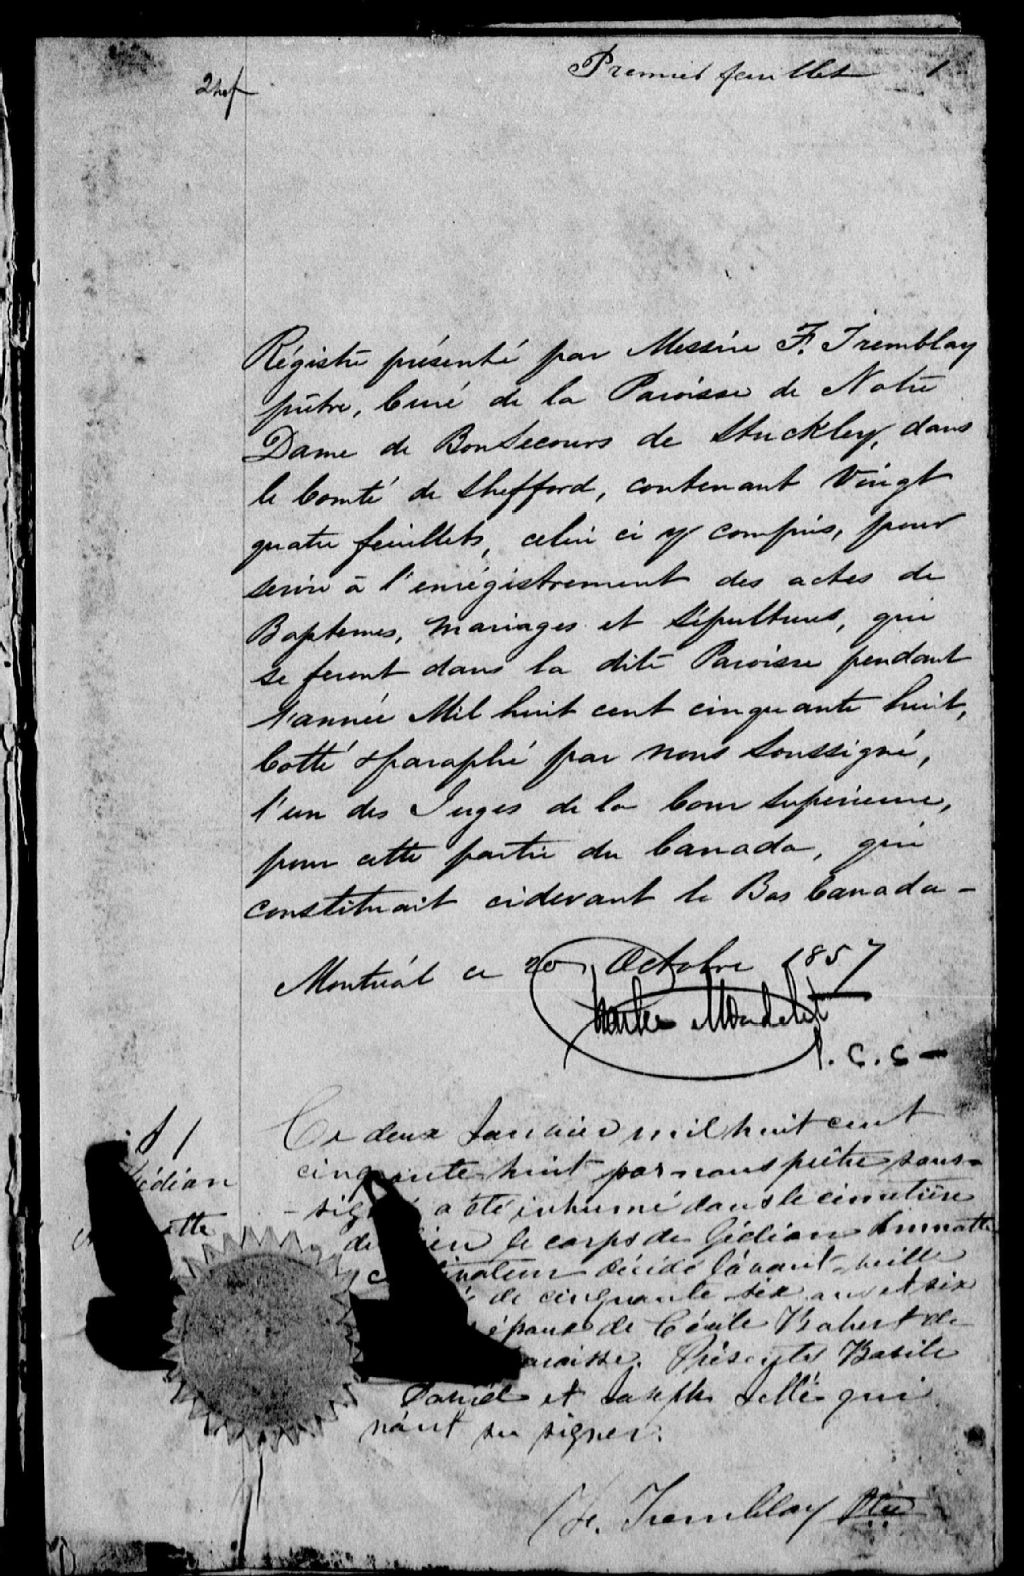 Premier feuillet 1
Régistre présenté par Messire F. Tremblay
prêtre, Curé de la Paroisse de Notre
Dame de Bonsecours de Stuckley, dans
le Comté de Shefford, contenant Vingt
quatre feuillets, celui ci y compris, pour
servir à l'enrégistrement des actes de
Baptemes, Mariages et Sépultures, qui
se feront dans la dite Paroisse pendant
l'année Mil huit cent cinquante huit,
Cotté & paraphé par nous Soussigné,
l'un des Juges de la Cour Supérieure,
pour cette partie du Canada, qui
constituait cidevant le Bas Canada -
Montréal ce 20 Octobre 1857
Charles Mondelet
J.C.S -
S 1
Gédéon
Ce deux Janvier mil huit cent
cinquante huit par nous prêtre sous-
-signé a été inhumé dans le cimetière
de lieu le corps de Gédéon
cultivateur décédé l'avant-veille
de cinquante six ans et six
époux de Cécile Robert de
paroisse. Présents Basile
et Joseph qui
n'ont su signer.
F. Tremblay Ptre